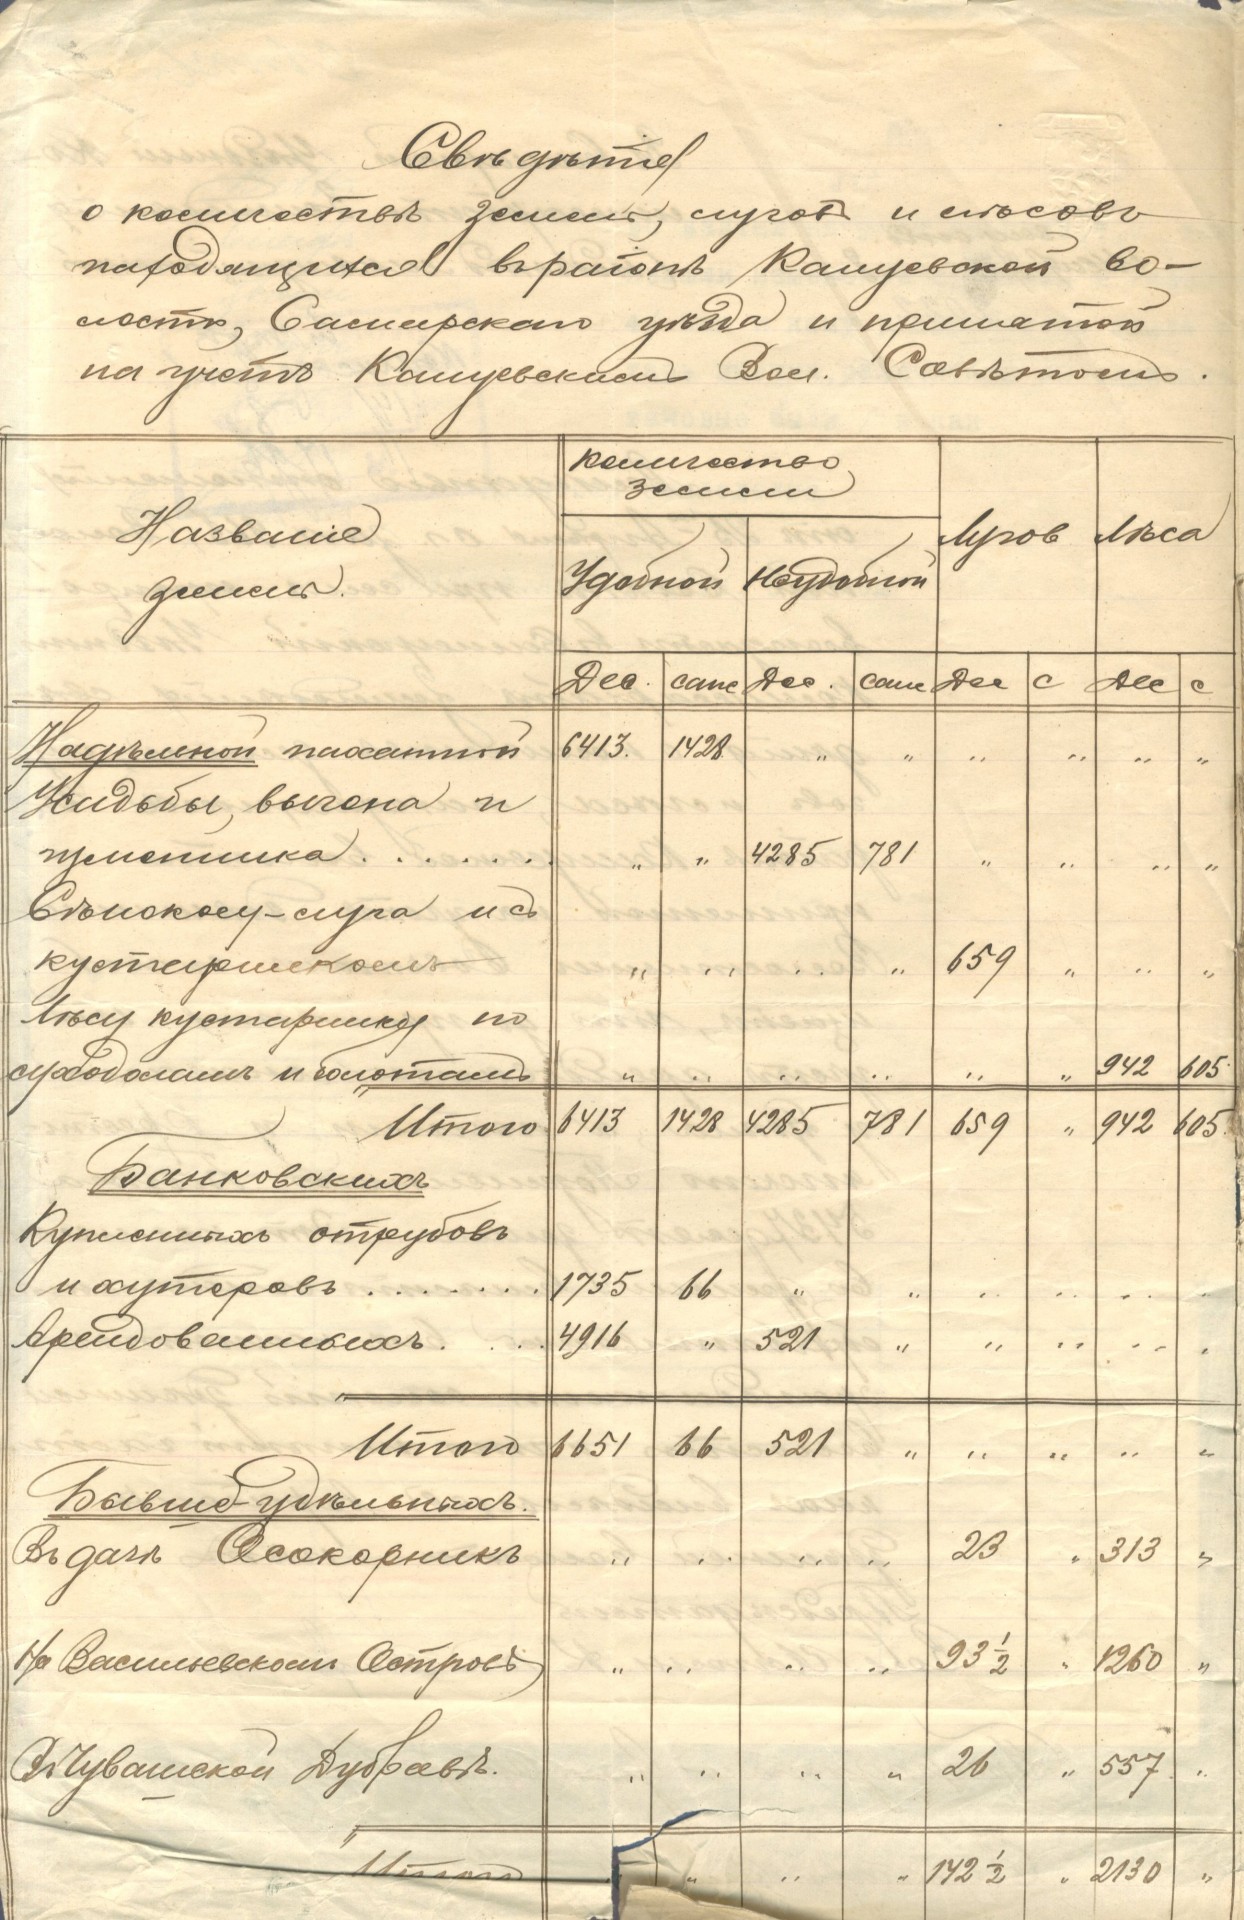 Свѣдѣнія
о количествѣ земель, лугов и лѣсовъ
находящихся въ районѣ Калуевской во-
лости, Самарскаго уѣзда и принятой
на учетъ Калуевскимъ Вол. Совѣтомъ.
Названіе
земель.
Количество
земли
Удобной Неудобной
Лугов Лѣса
Дес. саже Дес. саже Дес с Дес с
Надѣльной пахатной 6413. 1428 " " " " " "
Усадьбы, выгона и
гуменника . . . . . . . " " 4285 781 " " " "
Сѣнокосу-луга и съ
кустарникомъ " " " " 659 " " "
Лѣсу кустарнику по
суходоламъ и болотамъ " " " " " " 942 605
Итого 6413 1428 4285 781 659 " 942 605
Банковскихъ
Купленныхъ отрубовъ
и хуторовъ . . . . . . . 1735 66 " " " " " "
Арендованныхъ . . . . 4916 " 521 " " " " "
Итого 6651 66 521 " " " " "
Бывше-удѣльныхъ.
Въ дачѣ Осокорникъ " " " " 23 " 313 "
На Васильевскомъ Островѣ " " " " 93 1/2 " 1260 "
Въ Чувашской Дубравѣ. " " " " 26 " 557 "
Итого " " " " 142 1/2 " 2130 "